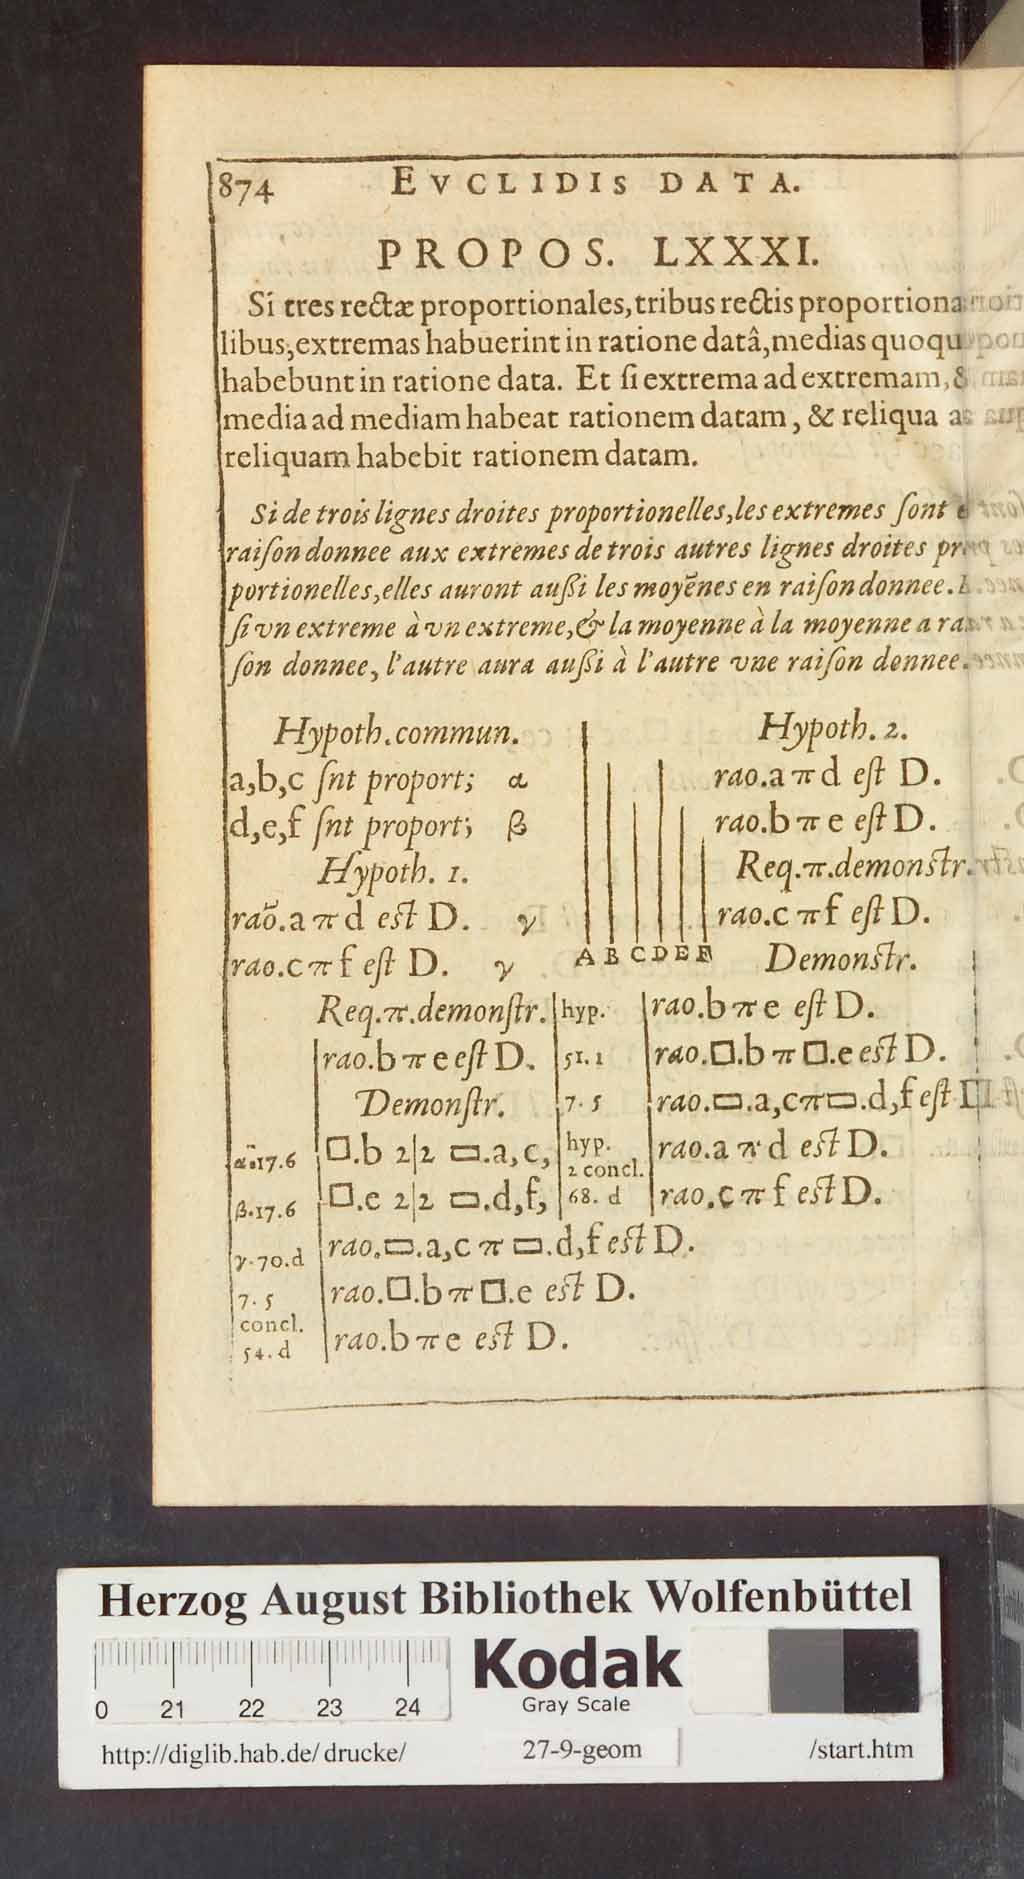 874 EVCLIDIS DATA.
PROPOS. LXXXI.
Si tres rectæ proportionales, tribus rectis proportiona
libus, extremas habuerint in ratione datâ, medias quoqu
habebunt in ratione data. Et si extrema ad extremam, &
media ad mediam habeat rationem datam, & reliqua a
reliquam habebit rationem datam.
Si de trois lignes droites proportionelles, les extremes ſont e
raiſon donnee aux extremes de trois autres lignes droites pr
portionelles, elles auront auſſi les moyẽnes en raiſon donnee.
ſi vn extreme à vn extreme, & la moyenne à la moyenne a ra
ſon donnee, l'autre aura auſſi à l'autre vne raiſon donnee.
Hypoth. commun.
a,b,c ſnt proport; α
d,e,f ſnt proport; β
Hypoth. 1.
raõ. a π d eſt D. γ
rao. c π f eſt D. γ
Req. π. demonſtr.
rao. b π e eſt D.
Demonſtr.
α.17.6 □.b 2|2 ▭.a,c,
β.17.6 □.e 2|2 ▭.d,f,
γ.70.d rao.▭.a,c π ▭.d,f eſt D.
7.5 rao.□.b π □.e eſt D.
concl.
54.d rao.b π e eſt D.
A B C D E F
Hypoth. 2.
rao. a π d eſt D.
rao. b π e eſt D.
Req. π. demonſtr.
rao. c π f eſt D.
Demonſtr.
hyp. rao. b π e eſt D.
51.1 rao.□.b π □.e eſt D.
7.5 rao.▭.a,c π ▭.d,f eſt D
hyp. rao. a π d eſt D.
2 concl.
68.d rao. c π f eſt D.
Herzog August Bibliothek Wolfenbüttel
0 21 22 23 24
Kodak
Gray Scale
http://diglib.hab.de/drucke/ 27-9-geom /start.htm